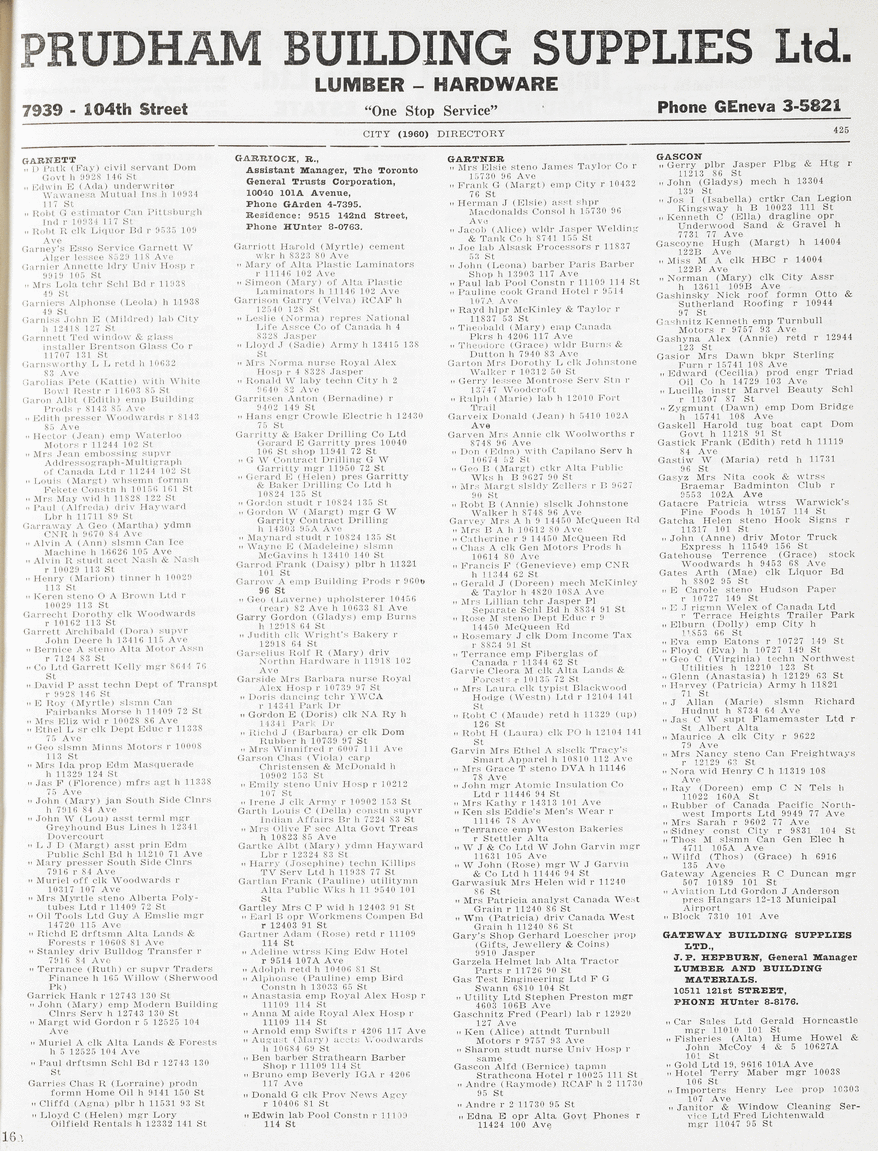 PRUDHAM BUILDING SUPPLIES Ltd.
LUMBER – HARDWARE
7939 - 104th Street
"One Stop Service"
Phone GEneva 3-5821
CITY (1960) DIRECTORY
425
GARNETT
" D Patk (Fay) civil servant Dom
Govt h 9928 146 St
" Edwin E (Ada) underwriter
Wawanesa Mutual Ins h 10934
117 St
" Robt G estimator Can Pittsburgh
Ind r 10934 117 St
" Robt R clk Liquor Bd r 9535 109
Ave
Garney's Esso Service Garnett W
Alger lessee 8529 118 Ave
Garnier Annette ldry Univ Hosp r
9919 105 St
" Mrs Lola tchr Schl Bd r 11938
49 St
Garniers Alphonse (Leola) h 11938
49 St
Garniss John E (Mildred) lab City
h 12418 127 St
Garnnett Ted window & glass
installer Brentson Glass Co r
11707 131 St
Garnsworthy L L retd h 10632
83 Ave
Garolias Pete (Kattie) with White
Bowl Restr r 11603 85 St
Garon Albt (Edith) emp Building
Prods r 8143 85 Ave
" Edith presser Woodwards r 8143
85 Ave
" Hector (Jean) emp Waterloo
Motors r 11244 102 St
" Mrs Jean embossing supvr
Addressograph-Multigraph
of Canada Ltd r 11244 102 St
" Louis (Margt) whsemn formn
Fekete Constn h 10156 161 St
" Mrs May wid h 11828 122 St
" Paul (Alfreda) driv Hayward
Lbr h 11711 89 St
Garraway A Geo (Martha) ydmn
CNR h 9670 84 Ave
" Alvin A (Ann) slsmn Can Ice
Machine h 16626 105 Ave
" Alvin R studt acct Nash & Nash
r 10029 113 St
" Henry (Marion) tinner h 10029
113 St
" Keren steno O A Brown Ltd r
10029 113 St
Garrecht Dorothy clk Woodwards
r 10162 113 St
Garrett Archibald (Dora) supvr
John Deere h 13416 115 Ave
" Bernice A steno Alta Motor Assn
r 7124 83 St
" Co Ltd Garrett Kelly mgr 8644 76
St
" David P asst techn Dept of Transpt
r 9928 146 St
" E Roy (Myrtle) slsmn Can
Fairbanks Morse h 11409 72 St
" Mrs Eliz wid r 10028 86 Ave
" Ethel L sr clk Dept Educ r 11338
75 Ave
" Geo slsmn Minns Motors r 10008
113 St
" Mrs Ida prop Edm Masquerade
h 11329 124 St
" Jas F (Florence) mfrs agt h 11338
75 Ave
" John (Mary) jan South Side Clnrs
h 7916 84 Ave
" John W (Lou) asst terml mgr
Greyhound Bus Lines h 12341
Dovercourt
" L J D (Margt) asst prin Edm
Public Schl Bd h 11210 71 Ave
" Mary presser South Side Clnrs
7916 r 84 Ave
" Muriel off clk Woodwards r
10317 107 Ave
" Mrs Myrtle steno Alberta Poly-
tubes Ltd r 11409 72 St
" Oil Tools Ltd Guy A Emslie mgr
14720 115 Ave
" Richd E drftsmn Alta Lands &
Forests r 10608 81 Ave
" Stanley driv Bulldog Transfer r
7916 84 Ave
" Terrance (Ruth) cr supvr Traders
Finance h 165 Willow (Sherwood
Pk)
Garrick Hank r 12743 130 St
" John (Mary) emp Modern Building
Clnrs Serv h 12743 130 St
" Margt wid Gordon r 5 12525 104
Ave
" Muriel A clk Alta Lands & Forests
h 5 12525 104 Ave
" Paul drftsmn Schl Bd r 12743 130
St
Garries Chas R (Lorraine) prodn
formn Home Oil h 9141 150 St
" Cliffd (Agna) plbr h 11531 93 St
" Lloyd C (Helen) mgr Lory
Oilfield Rentals h 12332 141 St
GARRIOCK, R.,
Assistant Manager, The Toronto
General Trusts Corporation,
10040 101A Avenue,
Phone GArden 4-7395.
Residence: 9515 142nd Street,
Phone HUnter 8-0763.
Garriott Harold (Myrtle) cement
wkr h 8323 80 Ave
" Mary of Alta Plastic Laminators
r 11146 102 Ave
" Simeon (Mary) of Alta Plastic
Laminators h 11146 102 Ave
Garrison Garry (Velva) RCAF h
12540 128 St
" Leslie (Norma) repres National
Life Assce Co of Canada h 4
8328 Jasper
" Lloyd J (Sadie) Army h 13415 138
St
" Mrs Norma nurse Royal Alex
Hosp r 4 8328 Jasper
" Ronald W laby techn City h 2
9640 82 Ave
Garritsen Anton (Bernadine) r
9402 149 St
" Hans engr Crowle Electric h 12430
75 St
Garritty & Baker Drilling Co Ltd
Gorard E Garritty pres 10040
106 St shop 11941 72 St
" G W Contract Drilling G W
Garritty mgr 11950 72 St
" Gerard E (Helen) pres Garritty
& Baker Drilling Co Ltd h
10824 135 St
" Gordon studt r 10824 135 St
" Gordon W (Margt) mgr G W
Garrity Contract Drilling
h 14303 95A Ave
" Maynard studt r 10824 135 St
" Wayne E (Madeleine) slsmn
McGavins h 13410 140 St
Garrod Frank (Daisy) plbr h 11321
101 St
Garrow A emp Building Prods r 9606
96 St
" Geo (Laverne) upholsterer 10456
(rear) 82 Ave h 10633 81 Ave
Garry Gordon (Gladys) emp Burns
h 12918 64 St
" Judith clk Wright's Bakery r
12918 64 St
Garselius Rolf R (Mary) driv
Northn Hardware h 11918 102
Ave
Garside Mrs Barbara nurse Royal
Alex Hosp r 10739 97 St
" Doris dancing tchr YWCA
r 14341 Park Dr
" Gordon E (Doris) clk NA Ry h
14341 Park Dr
" Richd J (Barbara) cr clk Dom
Rubber h 10739 97 St
" Mrs Winnifred r 6007 111 Ave
Garson Chas (Viola) carp
Christensen & McDonald h
10902 153 St
" Emily steno Univ Hosp r 10212
107 St
" Irene J clk Army r 10902 153 St
Garth Louis C (Della) constn supvr
Indian Affairs Br h 7224 83 St
" Mrs Olive F sec Alta Govt Treas
h 10823 85 Ave
Gartke Albt (Mary) ydmn Hayward
Lbr r 12324 83 St
" Harry (Josephine) techn Killips
TV Serv Ltd h 11938 77 St
Gartlan Frank (Pauline) utilitymn
Alta Public Wks h 11 9540 101
St
Gartley Mrs C P wid h 12403 91 St
" Earl B opr Workmens Compen Bd
r 12403 91 St
Gartner Adam (Rose) retd r 11109
114 St
" Adeline wtrss King Edw Hotel
r 9514 107A Ave
" Adolph retd h 10406 81 St
" Alphonse (Pauline) emp Bird
Constn h 13033 65 St
" Anastasia emp Royal Alex Hosp r
11109 114 St
" Anna M aide Royal Alex Hosp r
11109 114 St
" Arnold emp Swifts r 4206 117 Ave
" August (Mary) accts Woodwards
h 10684 69 St
" Ben barber Strathearn Barber
Shop r 11109 114 St
" Bruno emp Beverly IGA r 4206
117 Ave
" Donald G clk Prov News Agcy
r 10406 81 St
" Edwin lab Pool Constn r 11109
114 St
GARTNER
" Mrs Elsie steno James Taylor Co r
15730 96 Ave
" Frank G (Margt) emp City r 10432
76 St
" Herman J (Elsie) asst shpr
Macdonalds Consol h 15730 96
Ave
" Jacob (Alice) wldr Jasper Welding
& Tank Co h 8741 155 St
" Joe lab Alsask Processors r 11837
53 St
" John (Leona) barber Paris Barber
Shop h 13903 117 Ave
" Paul lab Pool Constn r 11109 114 St
" Pauline cook Grand Hotel r 9514
107A Ave
" Rayd hlpr McKinley & Taylor r
11837 53 St
" Theobald (Mary) emp Canada
Pkrs h 4206 117 Ave
" Theodore (Grace) wldr Burns &
Dutton h 7940 83 Ave
Garton Mrs Dorothy L clk Johnstone
Walker r 10312 50 St
" Gerry lessee Montrose Serv Stn r
13747 Woodcroft
" Ralph (Marie) lab h 12010 Fort
Trail
Garveix Donald (Jean) h 5410 102A
Ave
Garven Mrs Annie clk Woolworths r
8748 96 Ave
" Don (Edna) with Capilano Serv h
10674 52 St
" Geo B (Margt) ctkr Alta Public
Wks h B 9627 90 St
" Mrs Margt slsldy Zellers r B 9627
90 St
" Robt B (Annie) slsclk Johnstone
Walker h 8748 96 Ave
Garvey Mrs A h 9 14450 McQueen Rd
" Mrs B A h 10612 80 Ave
" Catherine r 9 14450 McQueen Rd
" Chas A clk Gen Motors Prods h
10614 80 Ave
" Francis F (Genevieve) emp CNR
h 11344 62 St
" Gerald J (Doreen) mech McKinley
& Taylor h 4820 108A Ave
" Mrs Lillian tchr Jasper Pl
Separate Schl Bd h 8834 91 St
" Rose M steno Dept Educ r 9
14450 McQueen Rd
" Rosemary J clk Dom Income Tax
r 8834 91 St
" Terrance emp Fiberglas of
Canada r 11344 62 St
Garvie Cleora M clk Alta Lands &
Forests r 10135 72 St
" Mrs Laura clk typist Blackwood
Hodge (Westn) Ltd r 12104 141
St
" Robt C (Maude) retd h 11329 (up)
126 St
" Robt H (Laura) clk PO h 12104 141
St
Garvin Mrs Ethel A slsclk Tracy's
Smart Apparel h 10810 112 Ave
" Mrs Grace T steno DVA h 11146
78 Ave
" John mgr Atomic Insulation Co
Ltd r 11446 94 St
" Mrs Kathy r 14313 101 Ave
" Ken sls Eddie's Men's Wear r
11146 78 Ave
" Terrance emp Weston Bakeries
r Stettler Alta
" W J & Co Ltd W John Garvin mgr
11631 105 Ave
" W John (Rose) mgr W J Garvin
& Co Ltd h 11446 94 St
Garwasiuk Mrs Helen wid r 11240
86 St
" Mrs Patricia analyst Canada West
Grain r 11240 86 St
" Wm (Patricia) driv Canada West
Grain h 11240 86 St
Gary's Shop Gerhard Loescher prop
(Gifts, Jewellery & Coins)
9910 Jasper
Garzela Helmet lab Alta Tractor
Parts r 11726 90 St
Gas Test Engineering Ltd F G
Swann 6810 104 St
" Utility Ltd Stephen Preston mgr
4603 106B Ave
Gaschnitz Fred (Pearl) lab r 12920
127 Ave
" Ken (Alice) attndt Turnbull
Motors r 9757 93 Ave
" Sharon studt nurse Univ Hosp r
same
Gascon Alfd (Bernice) tapmn
Strathcona Hotel r 10025 111 St
" Andre (Raymode) RCAF h 2 11730
95 St
" Andre r 2 11730 95 St
" Edna E opr Alta Govt Phones r
11424 100 Ave
GASCON
" Gerry plbr Jasper Plbg & Htg r
11213 86 St
" John (Gladys) mech h 13304
139 St
" Jos I (Isabella) crtkr Can Legion
Kingsway h B 10023 111 St
" Kenneth C (Ella) dragline opr
Underwood Sand & Gravel h
7731 77 Ave
Gascoyne Hugh (Margt) h 14004
122B Ave
" Miss M A clk HBC r 14004
122B Ave
" Norman (Mary) clk City Assr
h 13611 109B Ave
Gashinsky Nick roof formn Otto &
Sutherland Roofing r 10944
97 St
Gashnitz Kenneth emp Turnbull
Motors r 9757 93 Ave
Gashyna Alex (Annie) retd r 12944
123 St
Gasior Mrs Dawn bkpr Sterling
Furn r 15741 108 Ave
" Edward (Cecilia) prod engr Triad
Oil Co h 14729 103 Ave
" Lucille instr Marvel Beauty Schl
r 11307 87 St
" Zygmunt (Dawn) emp Dom Bridge
h 15741 108 Ave
Gaskell Harold tug boat capt Dom
Govt h 11218 91 St
Gastick Frank (Edith) retd h 11119
84 Ave
Gastiw W (Maria) retd h 11731
96 St
Gasyz Mrs Nita cook & wtrss
Braemar Badminton Club r
9553 102A Ave
Gatacre Patricia wtrss Warwick's
Fine Foods h 10157 114 St
Gatcha Helen steno Hook Signs r
11317 101 St
" John (Anne) driv Motor Truck
Express h 11549 156 St
Gatehouse Terrence (Grace) stock
Woodwards h 9453 68 Ave
Gates Arth (Mae) clk Liquor Bd
h 8802 95 St
" E Carole steno Hudson Paper
r 10727 149 St
" E J rigmn Welex of Canada Ltd
r Terrace Heights Trailer Park
" Elburn (Dolly) emp City h
11853 66 St
" Eva emp Eatons r 10727 149 St
" Floyd (Eva) h 10727 149 St
" Geo C (Virginia) techn Northwest
Utilities h 12210 123 St
" Glenn (Anastasia) h 12129 63 St
" Harvey (Patricia) Army h 11821
71 St
" J Allan (Marie) slsmn Richard
Hudnut h 8734 64 Ave
" Jas C W supt Flamemaster Ltd r
St Albert Alta
" Maurice A clk City r 9622
79 Ave
" Mrs Nancy steno Can Freightways
r 12129 63 St
" Nora wid Henry C h 11319 108
Ave
" Ray (Doreen) emp C N Tels h
11022 160A St
" Rubber of Canada Pacific North-
west Imports Ltd 9949 77 Ave
" Mrs Sarah r 9602 77 Ave
" Sidney const City r 9831 104 St
" Thos M slsmn Can Gen Elec h
4711 105A Ave
" Wilfd (Thos) (Grace) h 6916
135 Ave
Gateway Agencies R C Duncan mgr
507 10189 101 St
" Aviation Ltd Gordon J Anderson
pres Hangars 12-13 Municipal
Airport
" Block 7310 101 Ave
GATEWAY BUILDING SUPPLIES
LTD.,
J. P. HEPBURN, General Manager
LUMBER AND BUILDING
MATERIALS.
10511 121st STREET,
PHONE HUnter 8-8176.
" Car Sales Ltd Gerald Horncastle
mgr 11010 101 St
" Fisheries (Alta) Hume Howel &
John McCoy 4 & 5 10627A
101 St
" Gold Ltd 19, 9616 101A Ave
" Hotel Terry Maber mgr 10038
106 St
" Importers Henry Lee prop 10303
107 Ave
" Janitor & Window Cleaning Ser-
vice Ltd Fred Lichtenwald
mgr 11047 95 St
16A